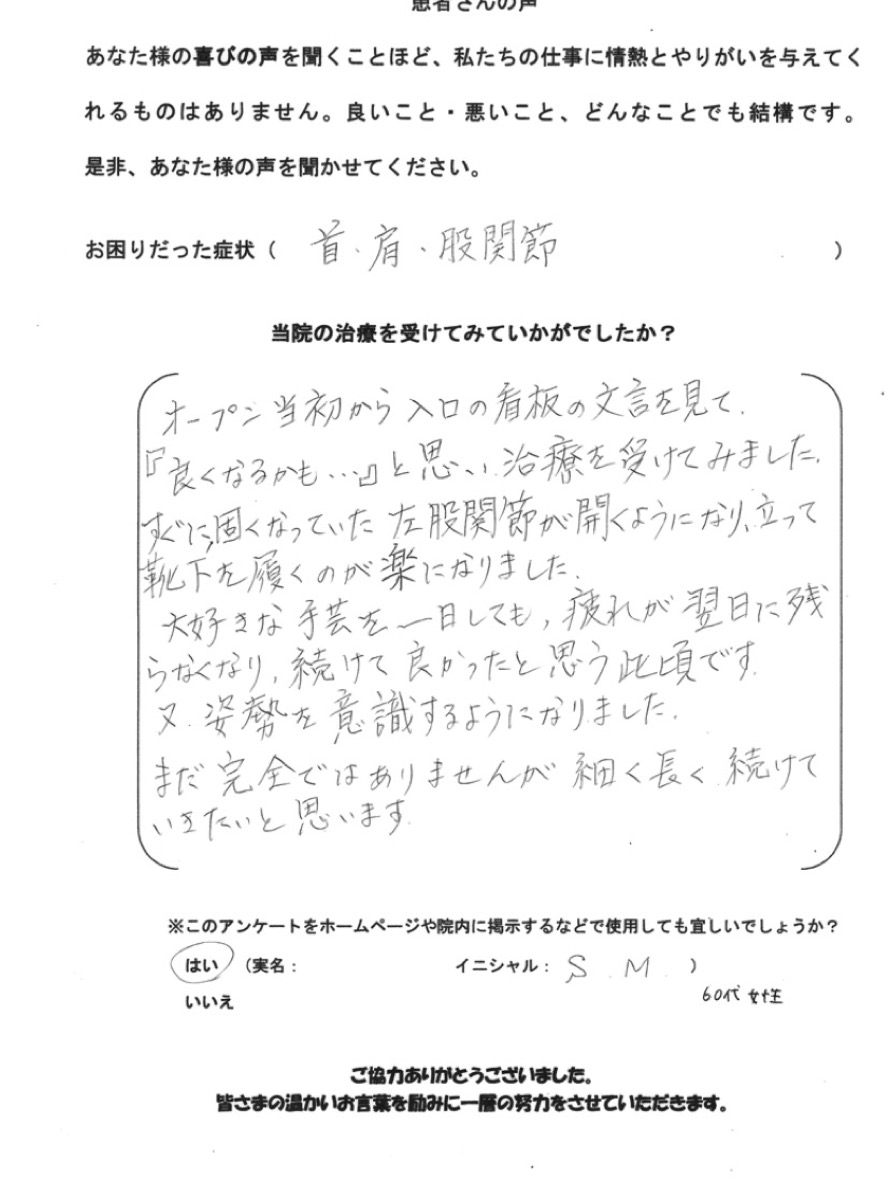 患者さんの声
あなた様の喜びの声を聞くことほど、私たちの仕事に情熱とやりがいを与えてく
れるものはありません。良いこと・悪いこと、どんなことでも結構です。
是非、あなた様の声を聞かせてください。
お困りだった症状（ 首・肩・股関節 ）
当院の治療を受けてみていかがでしたか？
オープン当初から入口の看板の文言を見て、
『良くなるかも…』と思い、治療を受けてみました。
すぐに、固くなっていた左股関節が開くようになり、立って
靴下を履くのが楽になりました。
大好きな手芸を一日しても、疲れが翌日に残
らなくなり、続けて良かったと思う此頃です。
又、姿勢を意識するようになりました。
まだ完全ではありませんが細く長く続けて
いきたいと思います。
※このアンケートをホームページや院内に掲示するなどで使用しても宜しいでしょうか？
はい （実名： イニシャル： S . M . ）
いいえ 60代 女性
ご協力ありがとうございました。
皆さまの温かいお言葉を励みに一層の努力をさせていただきます。